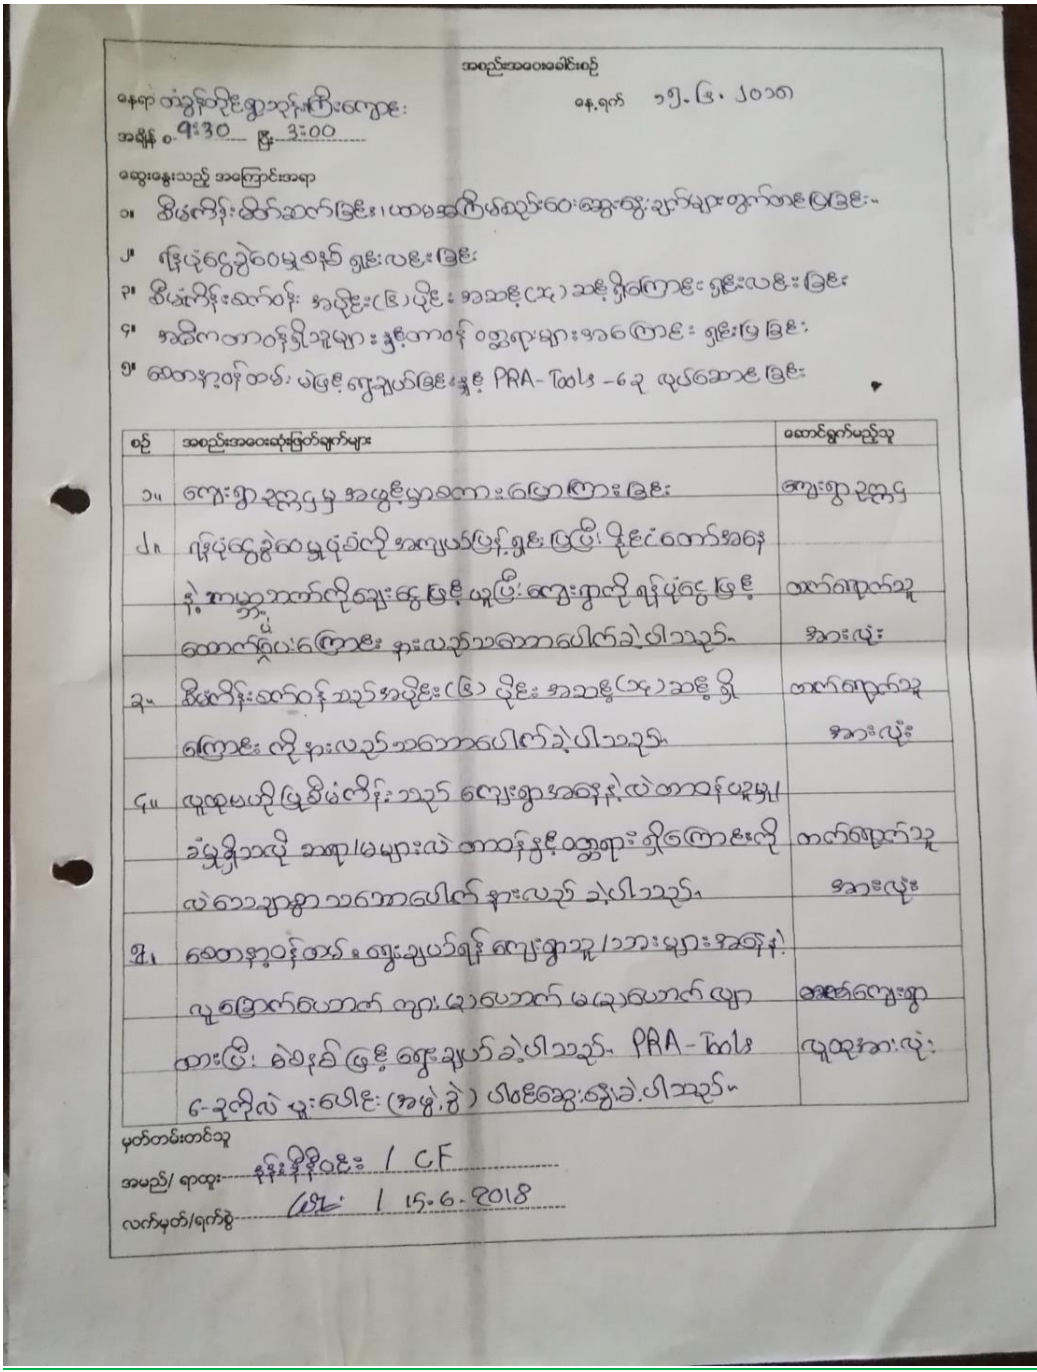 အစည်းအဝေးခေါင်းစဉ်
နေရာ တံခွန်တိုင်ရွာဘုန်းကြီးကျောင်း နေ့ရက် ၁၅.၆.၂၀၁၈
အချိန် ၀ 9:30 ပြီး 3:00
ဆွေးနွေးသည့် အကြောင်းအရာ
၁။ စီမံကိန်းမိတ်ဆက်ခြင်း၊ ပထမအကြိမ်စည်းဝေးဆွေးနွေးချက်များတွက်တင်ပြခြင်း။
၂။ ရန်ပုံငွေခွဲဝေမှုစနစ် ရှင်းလင်းခြင်း
၃။ စီမံကိန်းစက်ဝန်း အပိုင်း(၆)ပိုင်း အဆင့်(၁၄)ဆင့်ရှိကြောင်း ရှင်းလင်းခြင်း
၄။ အဓိကတာဝန်ရှိသူများ နှင့်တာဝန် ဝတ္တရားများအကြောင်း ရှင်းပြခြင်း
၅။ စေတနာ့ဝန်ထမ်း မဲဖြင့်ရွေးချယ်ခြင်းနှင့် PRA-Tools -6 ခု လုပ်ဆောင်ခြင်း
စဉ် အစည်းအဝေးဆုံးဖြတ်ချက်များ ဆောင်ရွက်မည့်သူ
၁။ ကျေးရွာဥက္ကဌမှ အဖွင့်မှာစကားပြောကြားခြင်း ကျေးရွာဥက္ကဌ
၂။ ရန်ပုံငွေခွဲဝေမှုပုံစံကို အကျယ်ပြန့်ရှင်းပြပြီး နိုင်ငံတော်အနေ
နဲ့ ကမ္ဘာ့ဘဏ်ကိုချေးငွေဖြင့် ယူပြီး ကျေးရွာကို ရန်ပုံငွေဖြင့် တက်ရောက်သူ
ထောက်ပံ့ပေးကြောင်း နားလည်သဘောပေါက်ခဲ့ပါသည်။ အားလုံး
၃။ စီမံကိန်းစက်ဝန်သည် အပိုင်း(၆)ပိုင်း အဆင့်(၁၄)ဆင့် ရှိ တက်ရောက်သူ
ကြောင်း ကို နားလည်သဘောပေါက်ခဲ့ပါသည်။ အားလုံး
၄။ လူထုဗဟိုပြုစီမံကိန်းသည် ကျေးရွာအနေနဲ့လဲ တာဝန်ယူမှု၊
ခံမှုရှိသလို ဆရာ/မများလဲ တာဝန်နှင့်ဝတ္တရားရှိကြောင်းကို တက်ရောက်သူ
လဲသေချာစွာသဘောပေါက် နားလည် ခဲ့ပါသည်။ အားလုံး
၅။ စေတနာ့ဝန်ထမ်းရွေးချယ်ရန် ကျေးရွာသူ/သားများအနေနဲ့
လူခြောက်ယောက် ကျား(၃)ယောက် မ(၃)ယောက် လျာ ကျေးရွာ
ထားပြီး မဲစနစ်ဖြင့် ရွေးချယ်ခဲ့ပါသည်။ PRA-Tools လူထုအားလုံး
6-ခုကိုလဲ ပူးပေါင်း(အဖွဲ့ခွဲ) ပါဝင်ဆွေးနွေးခဲ့ပါသည်။
မှတ်တမ်းတင်သူ
အမည်/ ရာထူး နန်းနီနီဝင်း / CF
လက်မှတ်/ရက်စွဲ / 15.6.2018